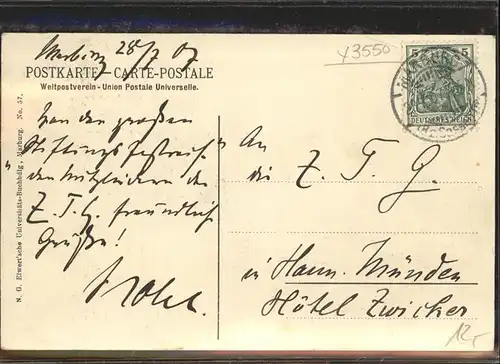 Marburg 28/7 07
POSTKARTE – CARTE-POSTALE
Weltpostverein - Union Postale Universelle.
Von der großen
den Mitgliedern der
Z. T. G. freundliche
Grüße!
An
die Z. T. G.
in Hann. Münden
Hôtel Zwicker
43550
5 5
DEUTSCHES REICH
MARBURG
N. G. Elwert'sche Universitäts-Buchhdlg., Marburg. No. 57.
12,-